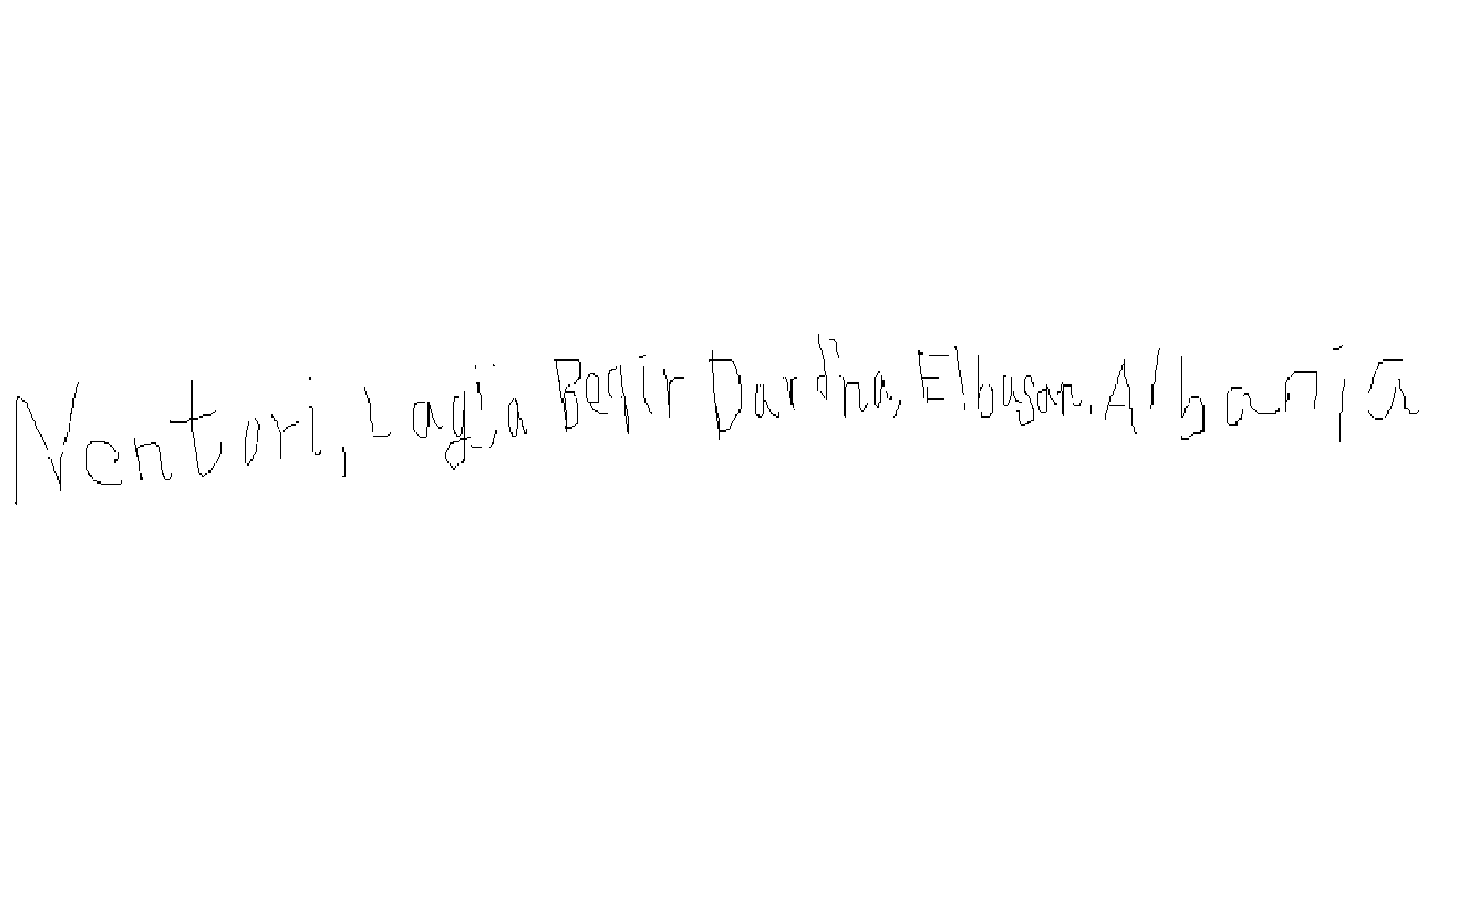 Nentori, Lagjja Beqir Dardha, Elbasan. Albanja